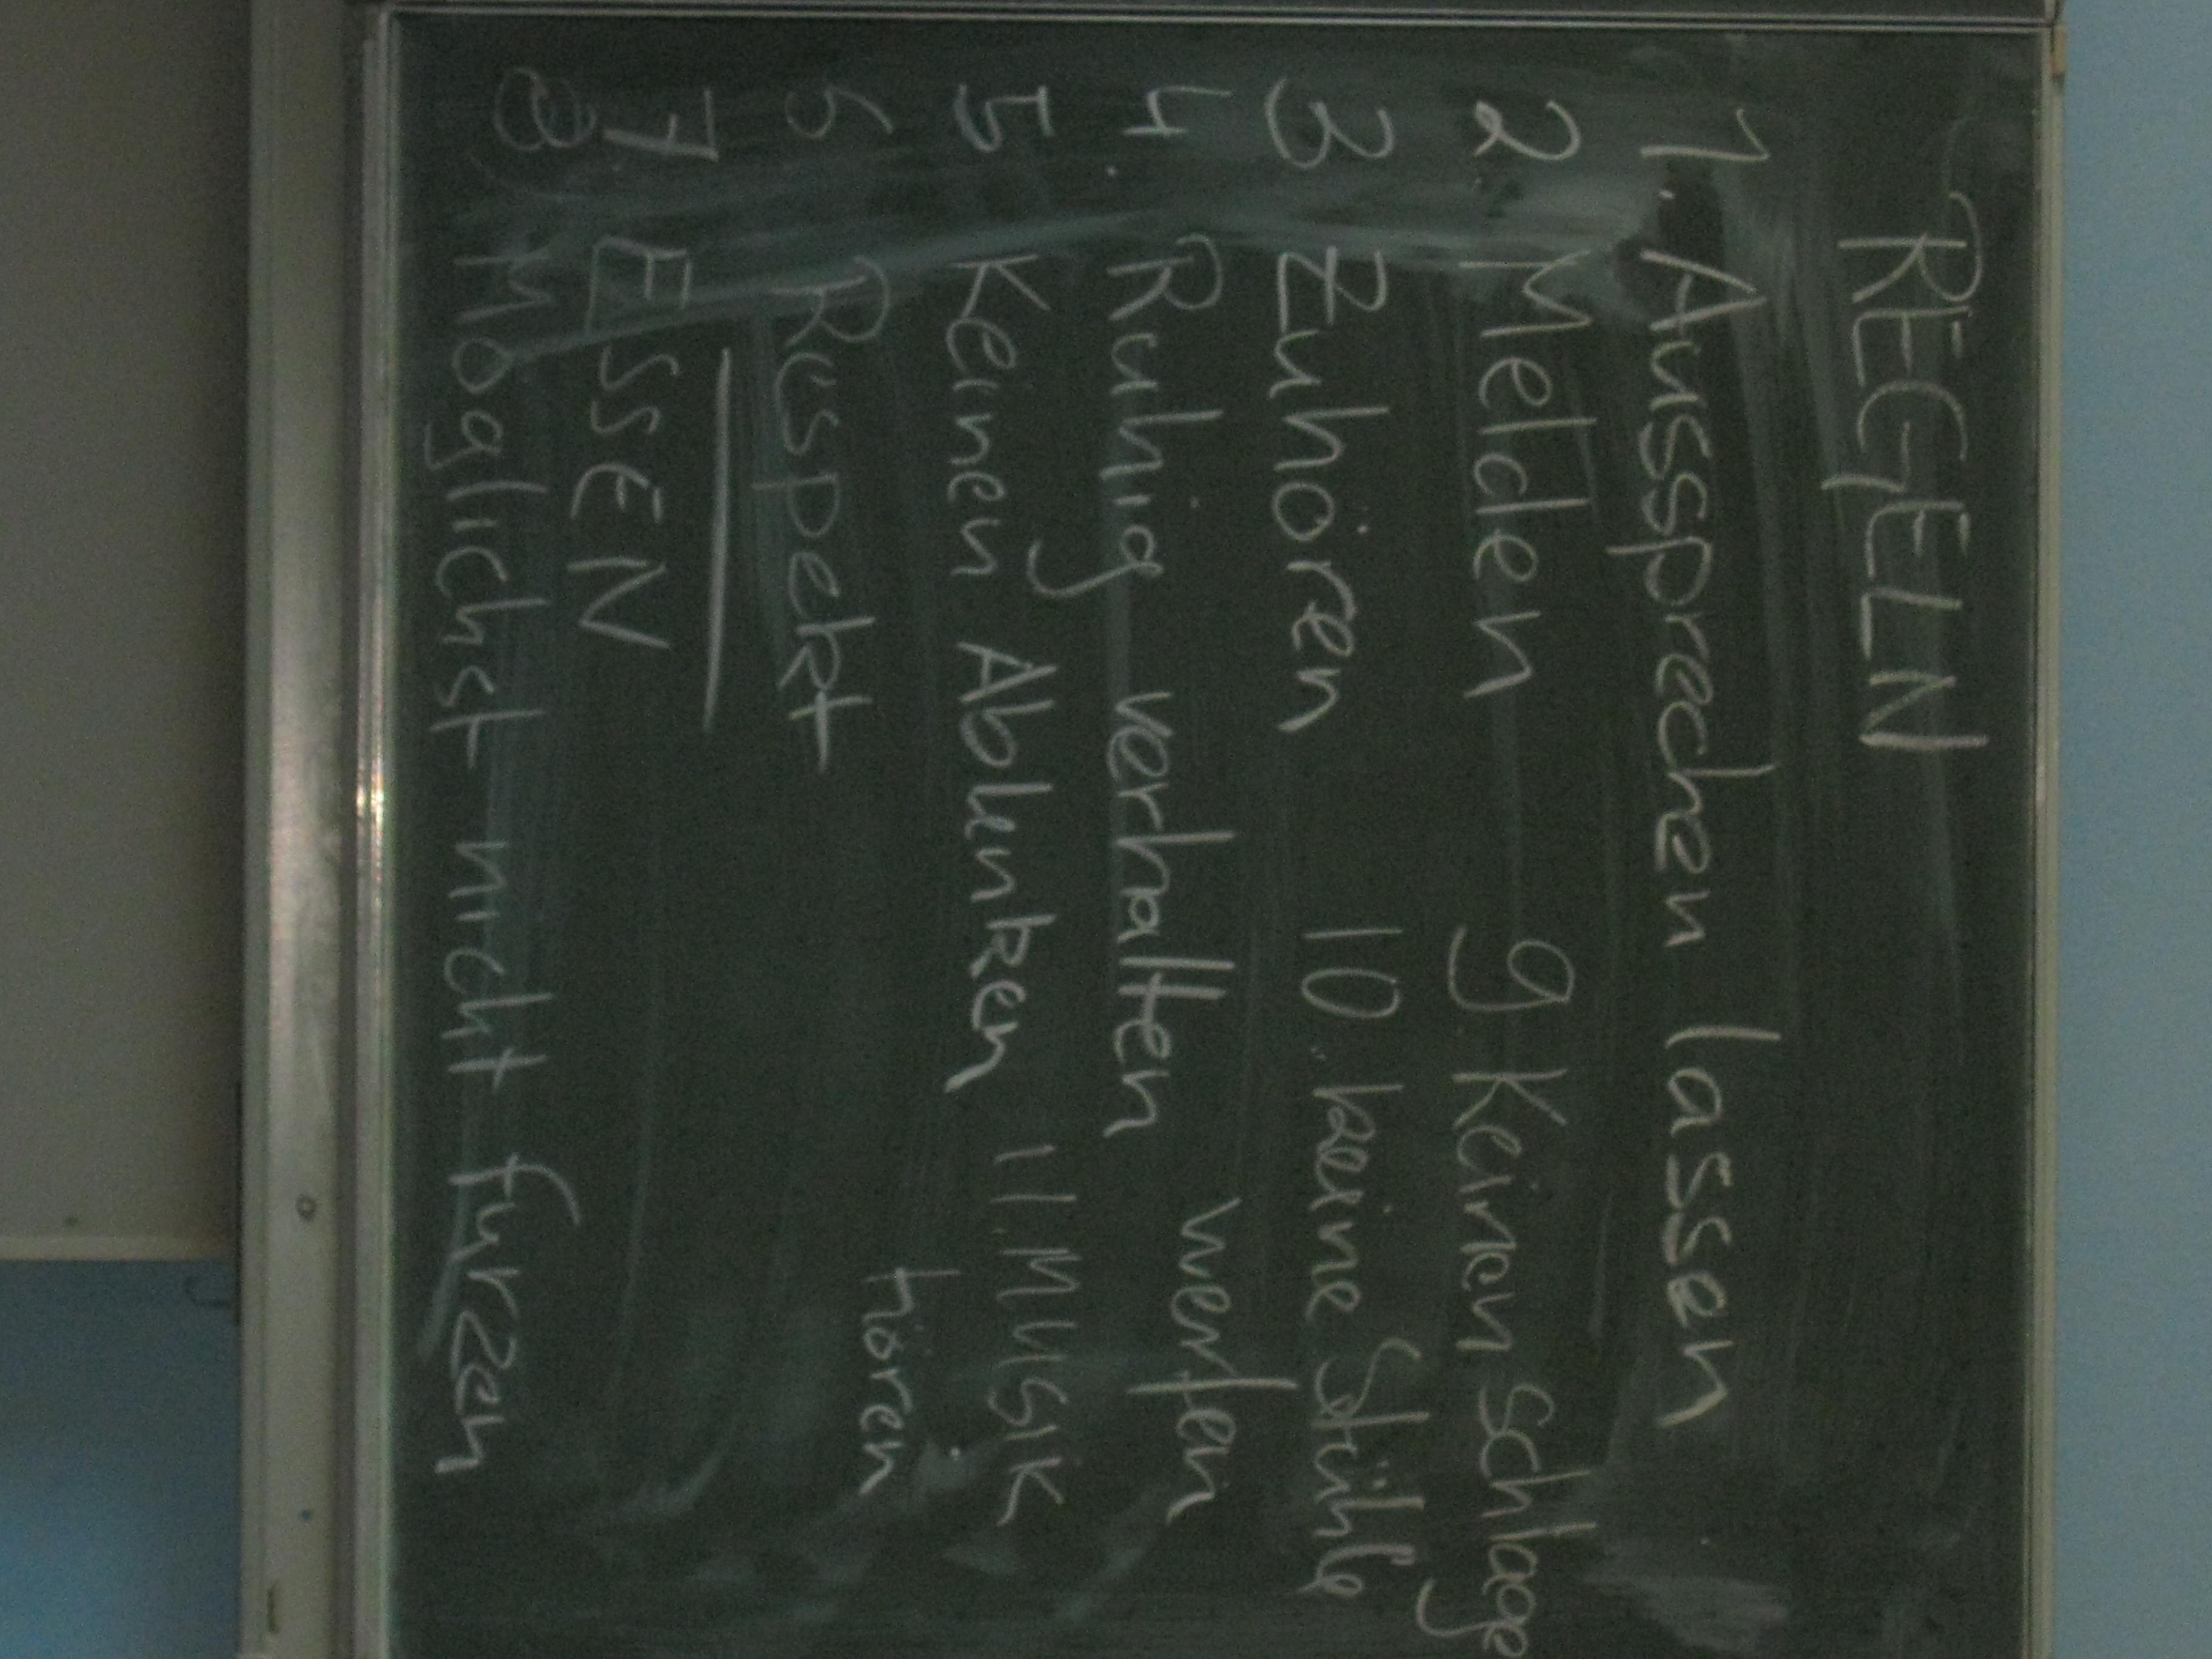 REGELN
1. Aussprechen lassen
2. Melden
9 Keinen schlage
3 Zuhören
10. keine Stühle
werfen
4. Ruhig verhalten
5 Keinen Ablenken
11. MUSIK
hören
6 Respekt
7. ESSEN
8. Möglichst nicht furzen